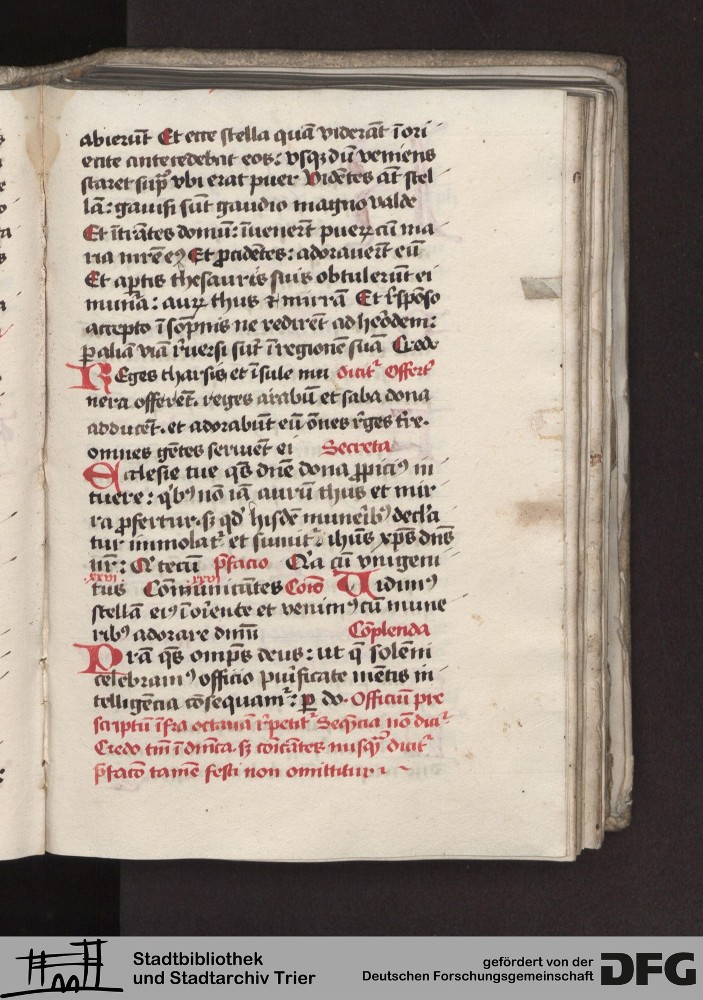 abierūt Et ecce stella quā viderāt ī ori
ente antecedebat eos: vsq; dū veniens
staret sup̄ vbi erat puer Vidētes aūt stel
lā: gauisi sūt gaudio magno valde
Et ītrātes domū: īvenerūt puerū cū ma
ria mr̄e eiꝰ Et ꝓcidētes: adorauerūt eū
Et aꝑtis thesauris suis obtulerūt ei
mun̄a: aurū thus ⁊ mirrā Et r̄spōso
accepto ī sōpnis ne redirēt ad herodem:
ꝑ aliā viā r̄uersi sūt ī regionē suā Credo
REges tharsis et īsule mu dicit᷑ Offert᷑
nera offerēt. reges arabū et saba dona
adducēt. et adorabūt eū ōnes reges tr̄e.
omnes gētes seruiēt ei Secreta
Ecclesie tue qs̄ dn̄e dona ꝓpiciꝰ in
tuere: qͥbꝰ nō iā aurū thus et mir
ra ꝓfertur. sꝫ qd̓ hisdē munerībꝰ decla
tur immolat᷑ et sumit᷑. ihūs xp̄s dn̄s
nr̄: Qͥ tecū p̄facio Qͥa cū vnigeni
xxvi xxvi
tus Cōmunicātes Cōio Uidimꝰ
stellā eiꝰ ī oriente et venimꝰ cū mune
ribꝰ adorare dnm̄ Cōplenda
PRā qs̄ omp̄s deus: ut q̄ solēni
celebramꝰ officio purificate mētis in
telligēcia cōsequam᷑: ꝑ do. Officiū pre
scriptū īfra octauā r̄petit᷑ Seqn̄cia nō dicit᷑
Credo tm̄ ī dn̄ica. sꝫ cōicātes nusqͣ dicit᷑
p̄facō tamē festi non omittitur
Stadtbibliothek
und Stadtarchiv Trier
gefördert von der
Deutschen Forschungsgemeinschaft
DFG